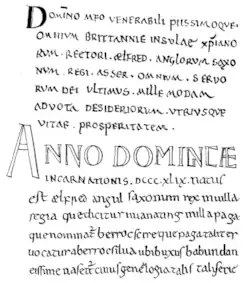 DOMINO MEO VENERABILI PIISSIMOQUE
OMNIUM BRITTANNIE INSULAE XPIANO
RUM . RECTORI . ÆLFRED . ANGLORUM SAXO
NUM . REGI . ASSER . OMNIUM . SERVO
RUM DEI ULTIMUS . MILLE MODAM
ADVOTA DESIDERIORUM . UTRIUSQUE
VITAE . PROSPERITATEM .
ANNO DOMINICÆ
INCARNATIONIS . DCCC.XLIX. natus
est ælfred angul saxonum rex in villa
regia quæ dicitur uuanating in illa paga
que nominatur berrocscire que paga taliter
vocatur a berroc silva ubi buxus habundan
tissime nascitur cuius genelogia tali serie